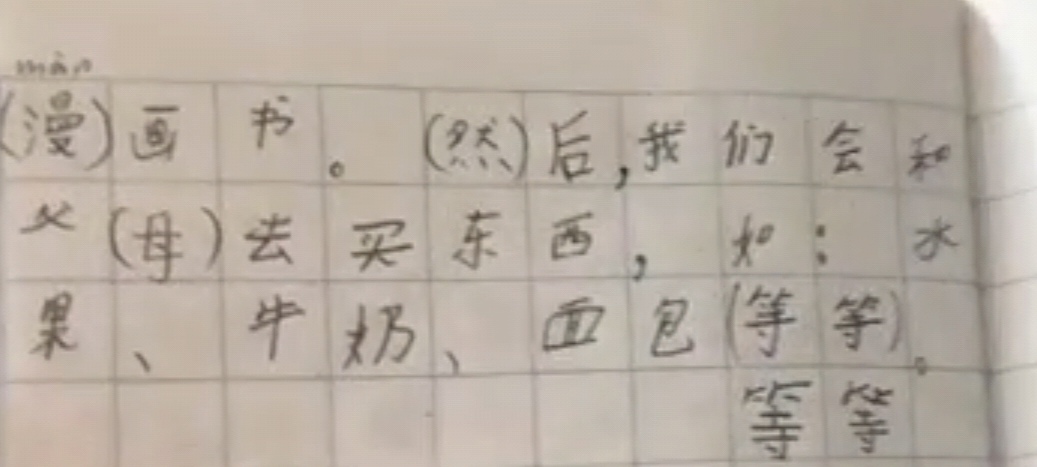 màn
(漫)画书。(然)后,我们会和
父(母)去买东西,如:水
果、牛奶、面包(等等)。
等等